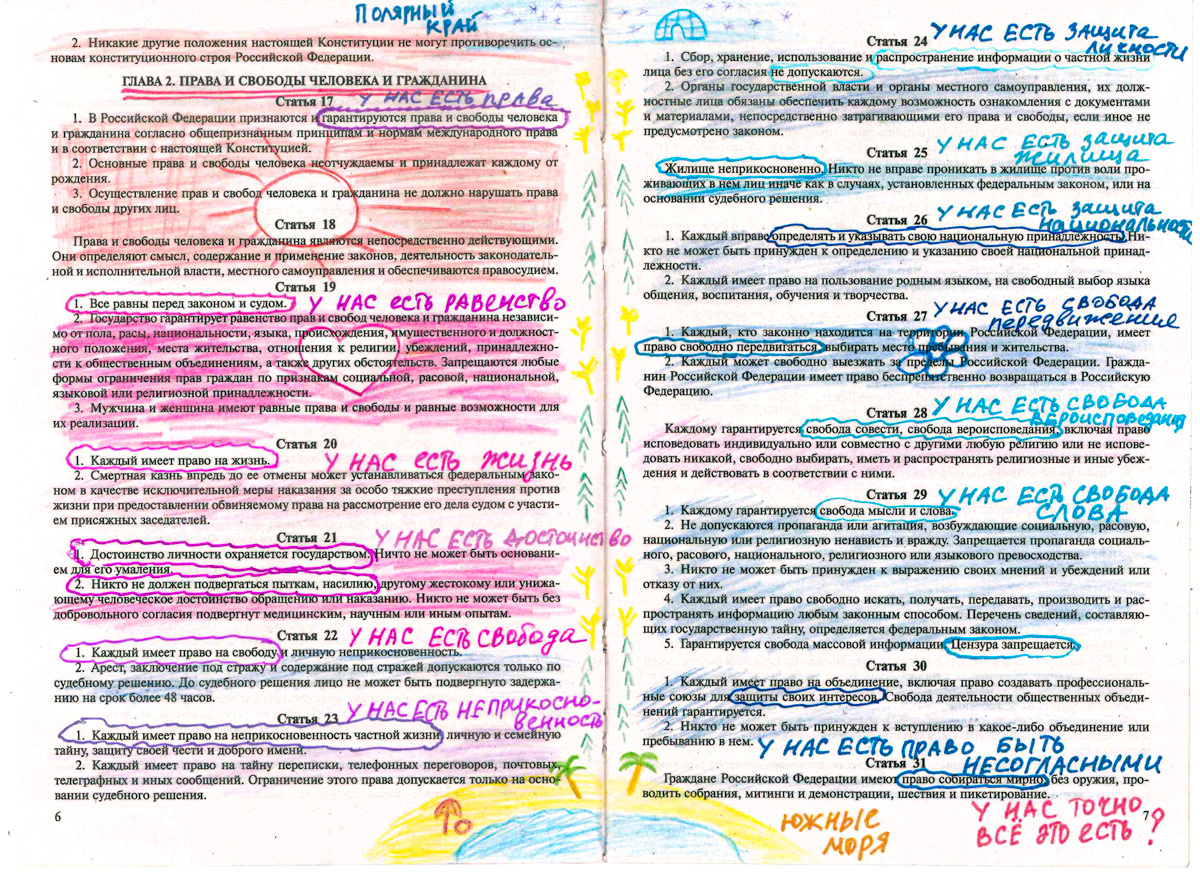 ПОЛЯРНЫЙ
КРАЙ
2. Никакие другие положения настоящей Конституции не могут противоречить ос-
новам конституционного строя Российской Федерации.
ГЛАВА 2. ПРАВА И СВОБОДЫ ЧЕЛОВЕКА И ГРАЖДАНИНА
Статья 17 У НАС ЕСТЬ ПРАВА
1. В Российской Федерации признаются и гарантируются права и свободы человека
и гражданина согласно общепризнанным принципам и нормам международного права
и в соответствии с настоящей Конституцией.
2. Основные права и свободы человека неотчуждаемы и принадлежат каждому от
рождения.
3. Осуществление прав и свобод человека и гражданина не должно нарушать права
и свободы других лиц.
Статья 18
Права и свободы человека и гражданина являются непосредственно действующими.
Они определяют смысл, содержание и применение законов, деятельность законодатель-
ной и исполнительной власти, местного самоуправления и обеспечиваются правосудием.
Статья 19
1. Все равны перед законом и судом. У НАС ЕСТЬ РАВЕНСТВО
2. Государство гарантирует равенство прав и свобод человека и гражданина независи-
мо от пола, расы, национальности, языка, происхождения, имущественного и должност-
ного положения, места жительства, отношения к религии, убеждений, принадлежно-
сти к общественным объединениям, а также других обстоятельств. Запрещаются любые
формы ограничения прав граждан по признакам социальной, расовой, национальной,
языковой или религиозной принадлежности.
3. Мужчина и женщина имеют равные права и свободы и равные возможности для
их реализации.
Статья 20
1. Каждый имеет право на жизнь. У НАС ЕСТЬ ЖИЗНЬ
2. Смертная казнь впредь до ее отмены может устанавливаться федеральным зако-
ном в качестве исключительной меры наказания за особо тяжкие преступления против
жизни при предоставлении обвиняемому права на рассмотрение его дела судом с участи-
ем присяжных заседателей.
Статья 21 У НАС ЕСТЬ ДОСТОИНСТВО
1. Достоинство личности охраняется государством. Ничто не может быть основани-
ем для его умаления.
2. Никто не должен подвергаться пыткам, насилию, другому жестокому или унижа-
ющему человеческое достоинство обращению или наказанию. Никто не может быть без
добровольного согласия подвергнут медицинским, научным или иным опытам.
Статья 22 У НАС ЕСТЬ СВОБОДА
1. Каждый имеет право на свободу и личную неприкосновенность.
2. Арест, заключение под стражу и содержание под стражей допускаются только по
судебному решению. До судебного решения лицо не может быть подвергнуто задержа-
нию на срок более 48 часов.
Статья 23 У НАС ЕСТЬ НЕПРИКОСНО-
ВЕННОСТЬ
1. Каждый имеет право на неприкосновенность частной жизни, личную и семейную
тайну, защиту своей чести и доброго имени.
2. Каждый имеет право на тайну переписки, телефонных переговоров, почтовых,
телеграфных и иных сообщений. Ограничение этого права допускается только на осно-
вании судебного решения.
6
Статья 24 У НАС ЕСТЬ ЗАЩИТА
ЛИЧНОСТИ
1. Сбор, хранение, использование и распространение информации о частной жизни
лица без его согласия не допускаются.
2. Органы государственной власти и органы местного самоуправления, их долж-
ностные лица обязаны обеспечить каждому возможность ознакомления с документами
и материалами, непосредственно затрагивающими его права и свободы, если иное не
предусмотрено законом.
Статья 25 У НАС ЕСТЬ ЗАЩИТА
ЖИЛИЩА
Жилище неприкосновенно. Никто не вправе проникать в жилище против воли про-
живающих в нем лиц иначе как в случаях, установленных федеральным законом, или на
основании судебного решения.
Статья 26 У НАС ЕСТЬ ЗАЩИТА
НАЦИОНАЛЬНОСТИ
1. Каждый вправе определять и указывать свою национальную принадлежность. Ни-
кто не может быть принужден к определению и указанию своей национальной принад-
лежности.
2. Каждый имеет право на пользование родным языком, на свободный выбор языка
общения, воспитания, обучения и творчества.
Статья 27 У НАС ЕСТЬ СВОБОДА
ПЕРЕДВИЖЕНИЯ
1. Каждый, кто законно находится на территории Российской Федерации, имеет
право свободно передвигаться, выбирать место пребывания и жительства.
2. Каждый может свободно выезжать за пределы Российской Федерации. Гражда-
нин Российской Федерации имеет право беспрепятственно возвращаться в Российскую
Федерацию.
Статья 28 У НАС ЕСТЬ СВОБОДА
ВЕРОИСПОВЕДАНИЯ
Каждому гарантируется свобода совести, свобода вероисповедания, включая право
исповедовать индивидуально или совместно с другими любую религию или не испове-
довать никакой, свободно выбирать, иметь и распространять религиозные и иные убеж-
дения и действовать в соответствии с ними.
Статья 29 У НАС ЕСТЬ СВОБОДА
СЛОВА
1. Каждому гарантируется свобода мысли и слова.
2. Не допускаются пропаганда или агитация, возбуждающие социальную, расовую,
национальную или религиозную ненависть и вражду. Запрещается пропаганда социаль-
ного, расового, национального, религиозного или языкового превосходства.
3. Никто не может быть принужден к выражению своих мнений и убеждений или
отказу от них.
4. Каждый имеет право свободно искать, получать, передавать, производить и рас-
пространять информацию любым законным способом. Перечень сведений, составляю-
щих государственную тайну, определяется федеральным законом.
5. Гарантируется свобода массовой информации. Цензура запрещается.
Статья 30
1. Каждый имеет право на объединение, включая право создавать профессиональ-
ные союзы для защиты своих интересов. Свобода деятельности общественных объеди-
нений гарантируется.
2. Никто не может быть принужден к вступлению в какое-либо объединение или
пребыванию в нем. У НАС ЕСТЬ ПРАВО БЫТЬ
НЕСОГЛАСНЫМИ
Статья 31
Граждане Российской Федерации имеют право собираться мирно, без оружия, про-
водить собрания, митинги и демонстрации, шествия и пикетирование.
7
ЮЖНЫЕ
МОРЯ
У НАС ТОЧНО
ВСЁ ЭТО ЕСТЬ?